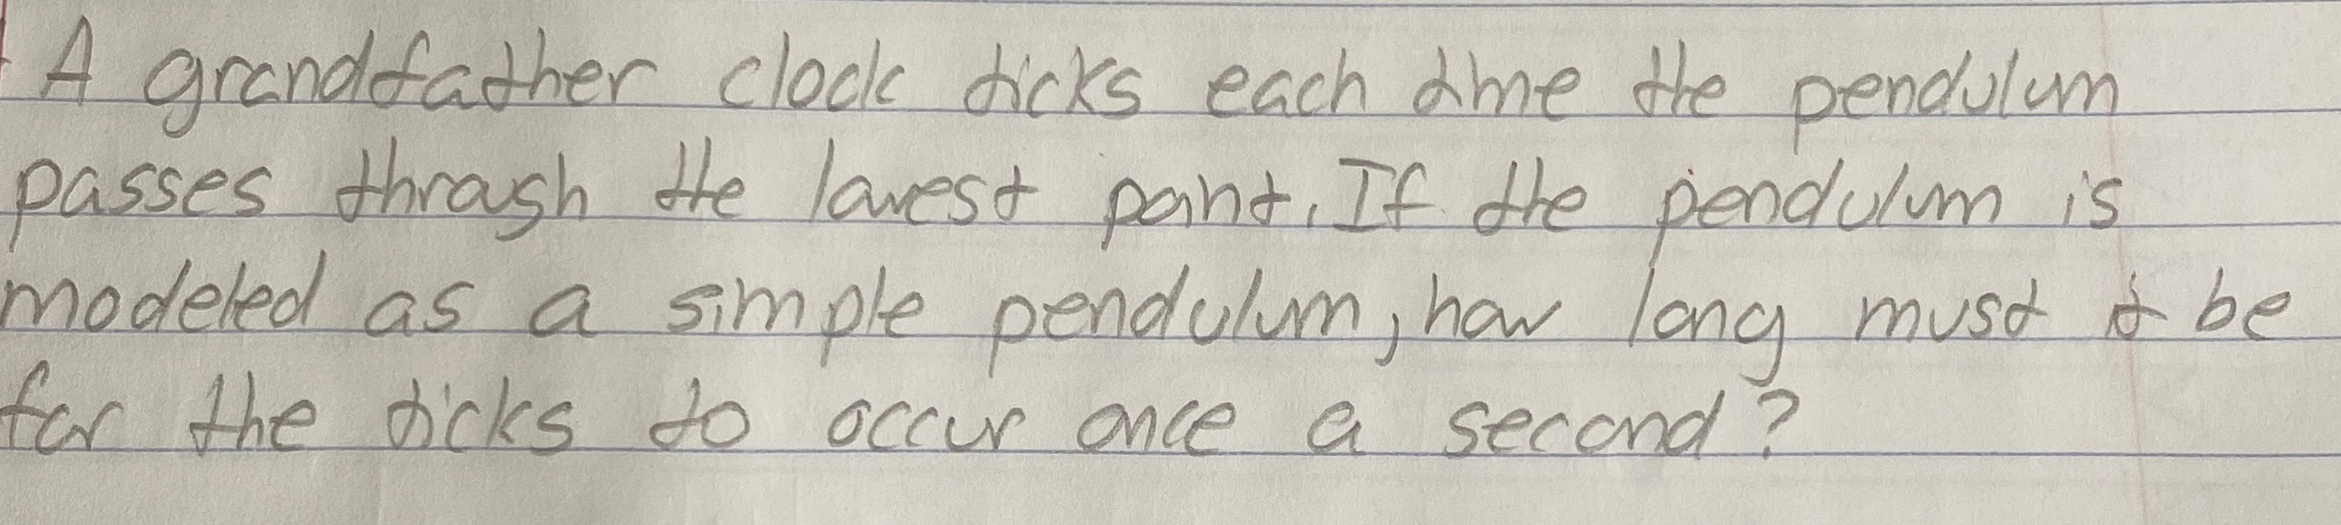 A grandfather clock ticks each time the pendulum
passes through the lowest point. If the pendulum is
modeled as a simple pendulum, how long must it be
for the ticks to occur once a second?